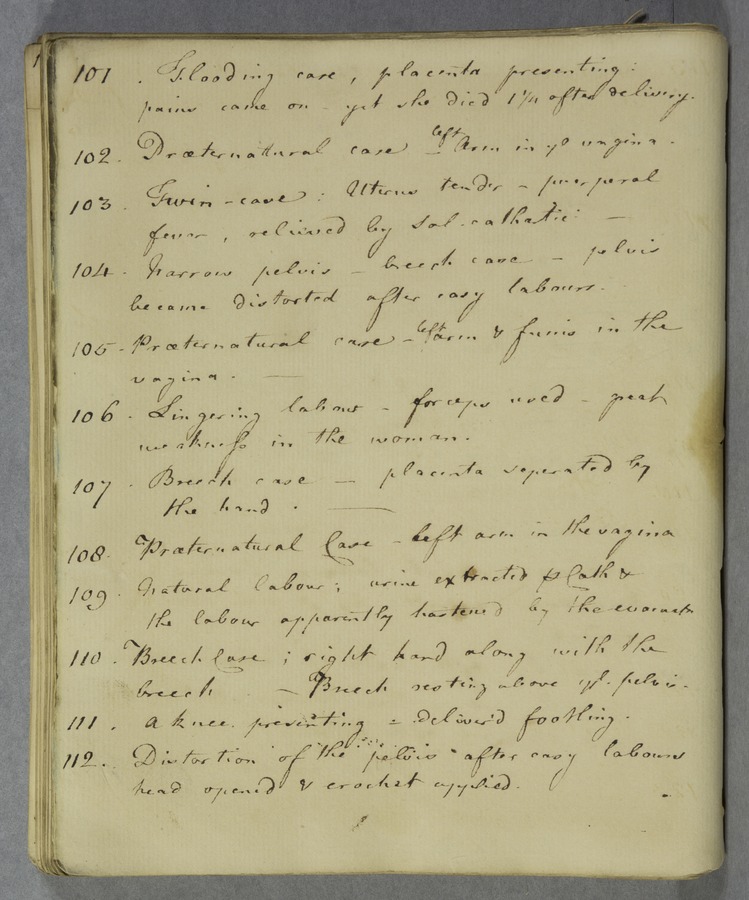 101. Flooding case, placenta presenting:
pains came on - yet she died 1½ after delivery.
102. Præternatural case - left Arm in ye vagina.
103. Twin-case: Uterus tender - puerperal
fever, relieved by Sal. cathatic: -
104. Narrow pelvis - breech case - pelvis
became distorted after easy labours.
105. Præternatural case - left arm & funis in the
vagina. -
106. Lingering labour - forceps used - great
weakness in the woman.
107. Breech case - placenta seperated by
the hand. -
108. Præternatural Case - left arm in the vagina
109. Natural labour; urine extracted p Cath &
the labour apparently hastened by the
110. Breech Case; right hand along with the
breech - Breech resting above ye pelvis.
111. A knee presenting = deliver'd footling.
112. Distortion of the pelvis after easy labours
head opened & crochet applied.